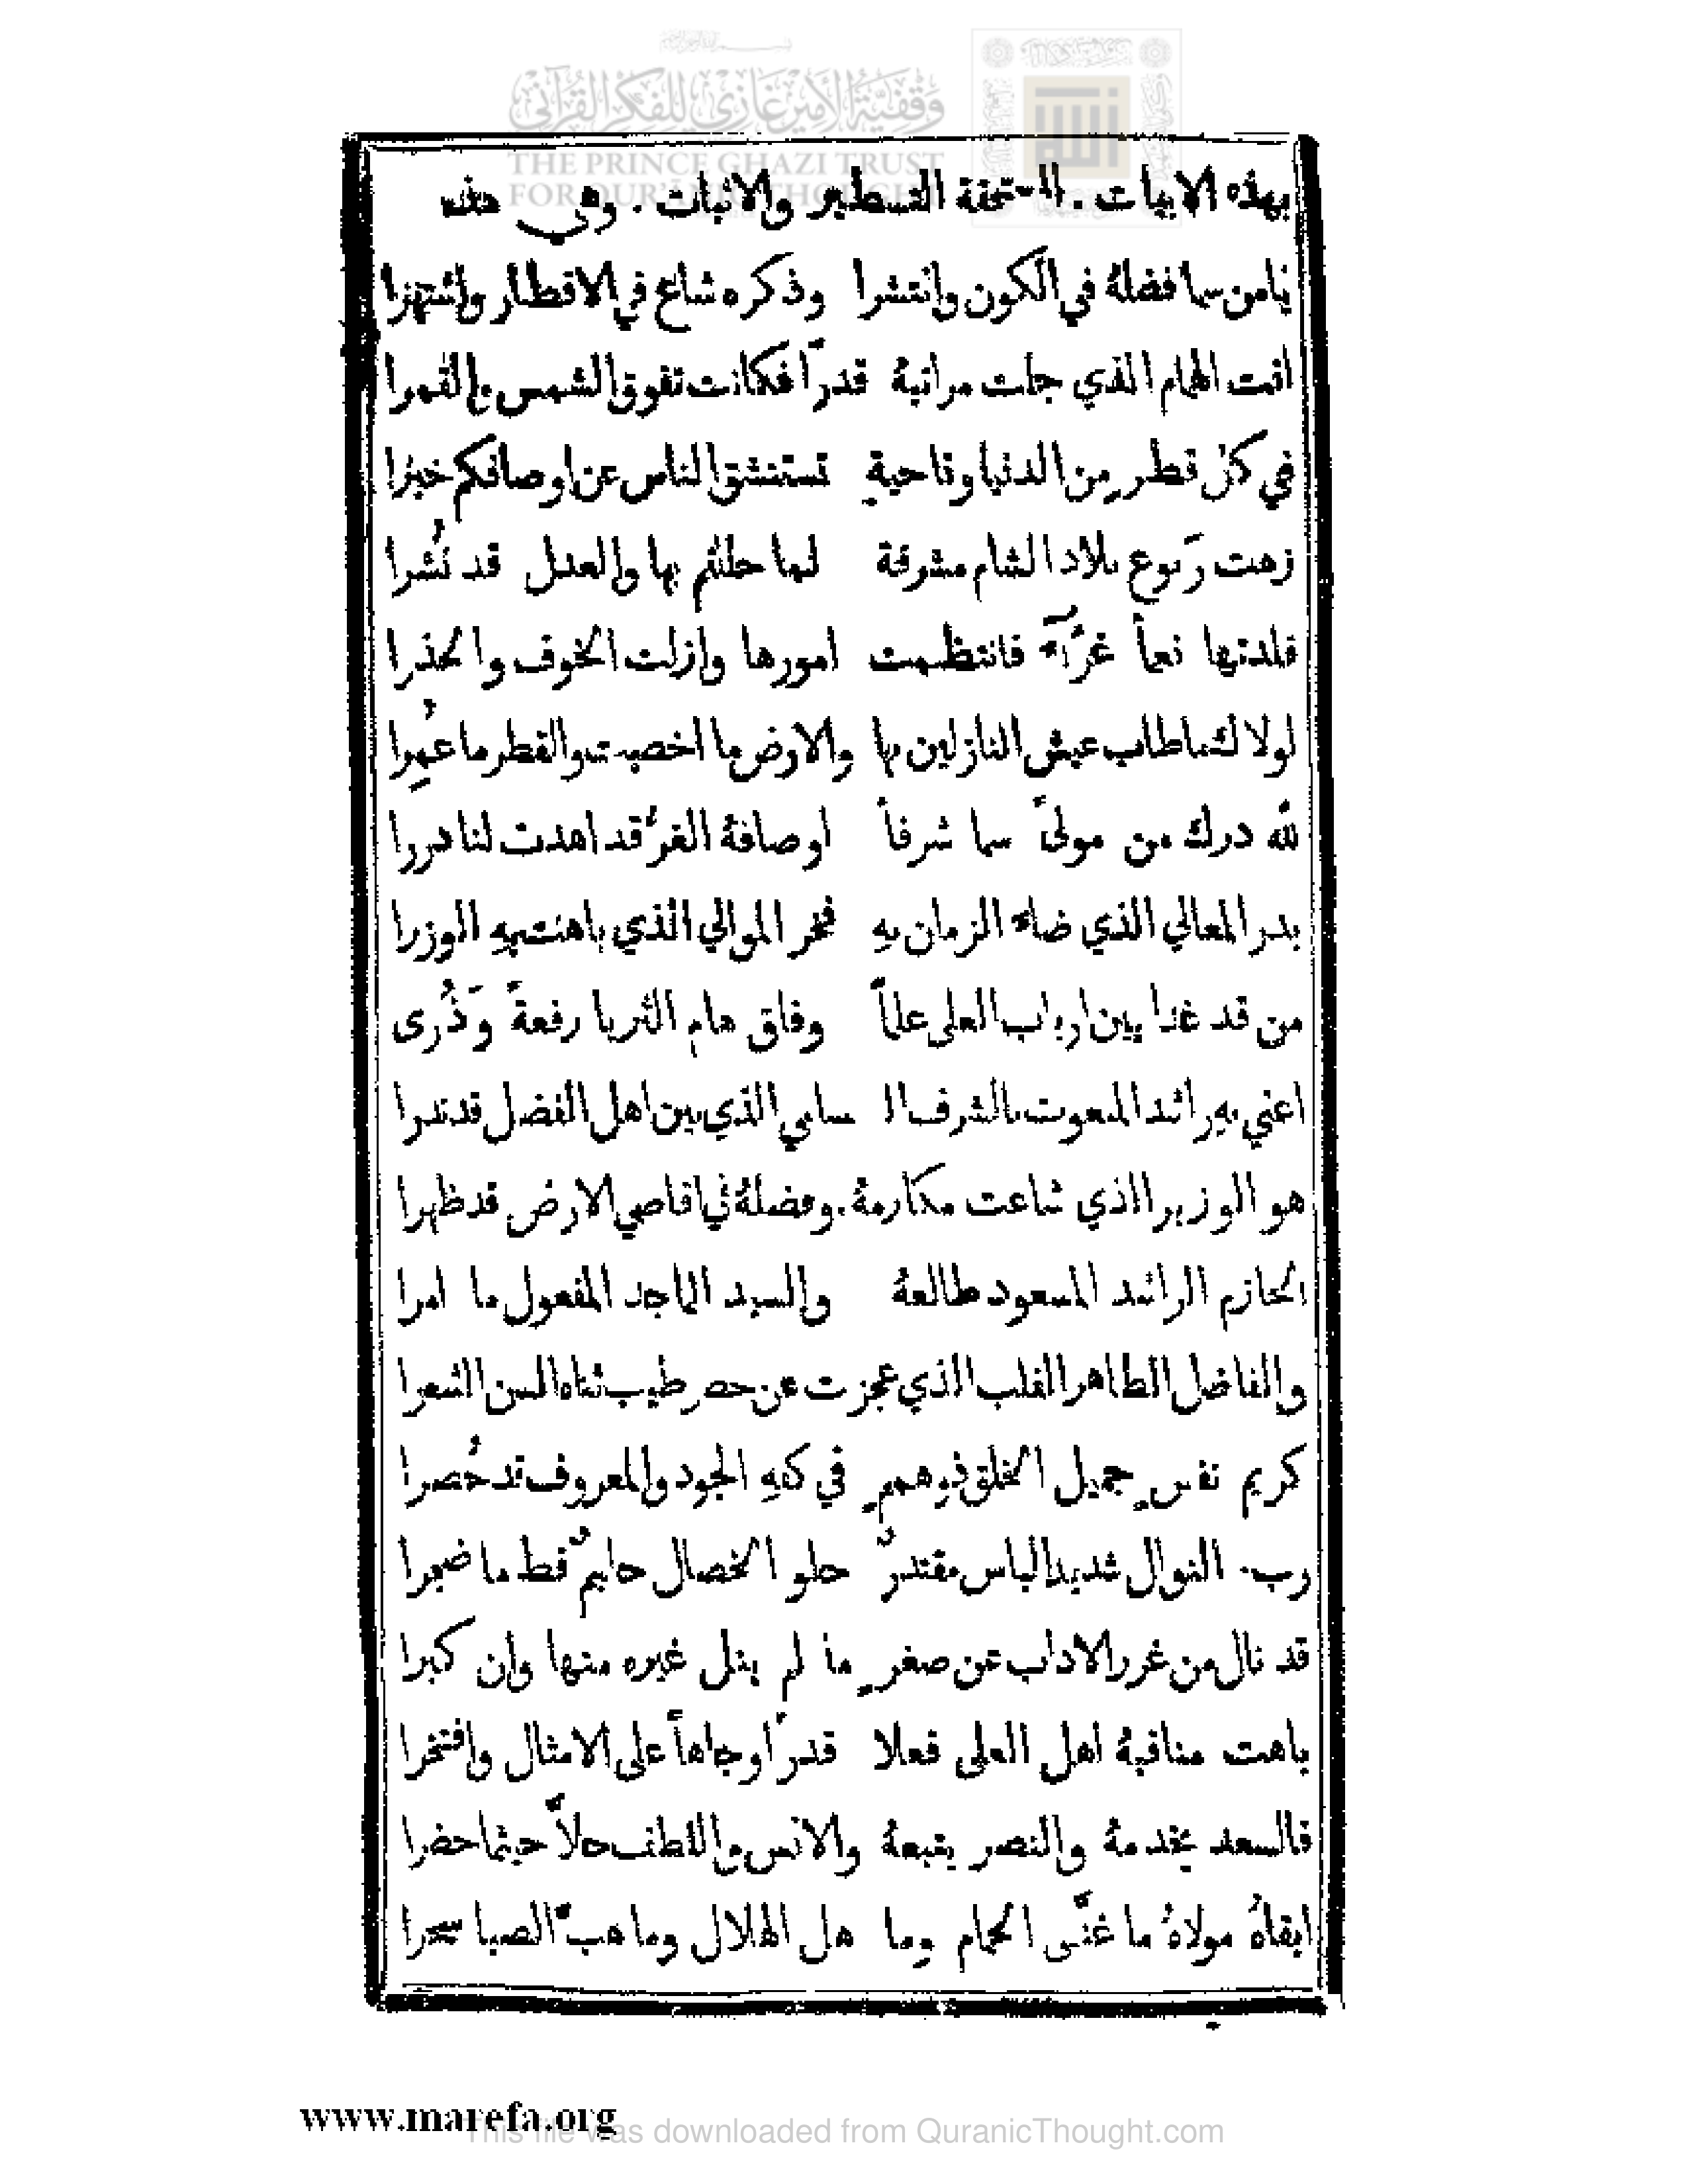 وقفية الأمير غازي للفكر القرآني
THE PRINCE GHAZI TRUST
FOR QUR'ANIC THOUGHT
بهذه الابيات . المستحقة التسطير والاثبات . وهي هذه
يامن سما فضلهُ في الكون وانتشرا وذكره شاع في الاقطار واشتهرا
انت الهمام الذي جلت مراتبهُ قدرًا فكانت تفوق الشمس والقمرا
في كل قطرٍ من الدنيا وناحيةٍ تستنشق الناس عن اوصافكم خبرًا
زهت رَبوع بلاد الشام مشرقة لما حللتم بها والعدل قد نُشرا
قلدتها نعماً غرَّآءَ فانتظمت امورها وازلت الخوف والحذرا
لولاك ماطاب عيش النازلين بها والارض ما اخصبت والقطر ما عُمِرا
لله درك من مولىً سما شرفاً اوصافهُ الغرُّ قد اهدت لنا دررا
بدر المعالي الذي ضاء الزمان بهِ فخر الموالي الذي باهت بهِ الوزرا
من قد غدا بين ارباب العلى علماً وفاق هام الثريا رفعةً وَذُرى
اعني بهِ راشد المنعوت بالشرف ال سامي الذي بين اهل الفضل قد ندرا
هو الوزير الذي شاعت مكارمهُ . وفضلهُ في اقاصي الارض قد ظهرا
الحازم الراشد المسعود طالعهُ والسيد الماجد المفعول ما امرا
والفاضل الطاهر القلب الذي عجزت عن حصر طيب ثناه السن الشعرا
كريم نفسٍ جميل الخلق ذو هممٍ في كفهِ الجود والمعروف قد حُصرا
رب النوال شديد الباس مقتدرٌ حلو الخصال حليمٌ قط ما ضجرا
قد نال من غرر الاداب عن صغرٍ ما لم ينل غيره منها وان كبرا
باهت مناقبهُ اهل العلى فعلا قدرًا وجاهاً على الامثال وافتخرا
فالسعد يخدمهُ والنصر يتبعهُ والانس واللطف حلاَّ حيثما حضرا
ابقاهُ مولاهُ ما غنَّى الحمام وما هل الهلال وما هبَّ الصبا سحرا
www.marefa.org
This file was downloaded from QuranicThought.com